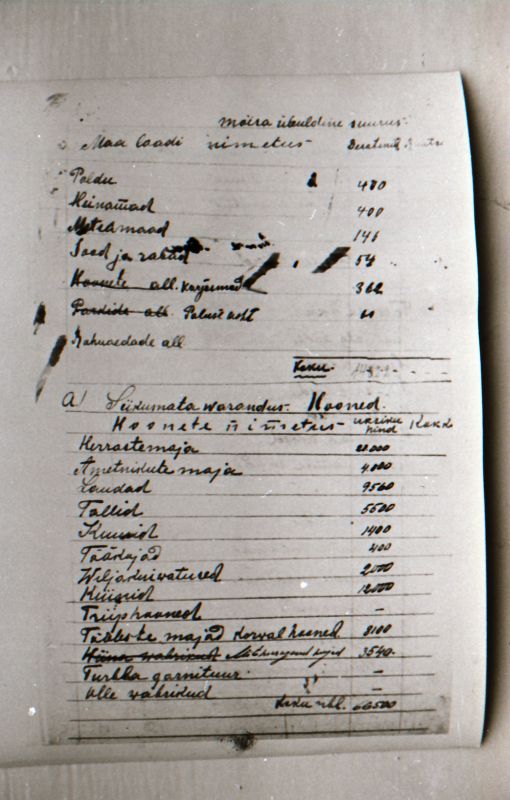 Moisa üleüldine suurus.
Maa laadi nimetus Desetenid
Põldu 470
Heinamad 400
Metsamaad 146
Sood ja rabad 54
Hoonete all. Karjasmad 362
Parkide all
Rahuaedade all
Kokku.
A/ Liikumata warandus. Hooned.
Hoonete nimetus hind Kokk
Herrastemaja 20.000
Ametnikute maja 4.000
Laudad 9560
Tallid 5500
Kuurid 1400
Töökojad 400
Wiljakuiwatused 2000
Küünid 12000
Triiphooned –
Tööliste majad korwal hooned 8100
Wiina wabrikud 3540
Turbha garnituur. –
Õlle wabrikud –
Kokku rbl. 66500